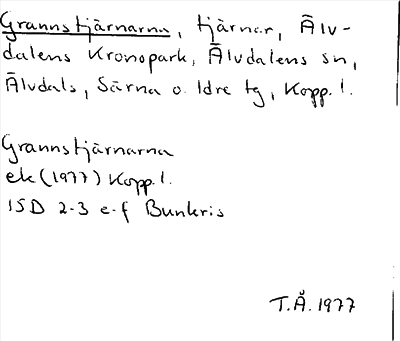 Grannstjärnarna, tjärnar, Älv-
dalens Kronopark, Älvdalens sn,
Älvdals, Särna o. Idre tg, Kopp. l.
Grannstjärnarna
ek (1977) Kopp. l.
15D 2-3 e-f Bunkris
T.Å. 1977